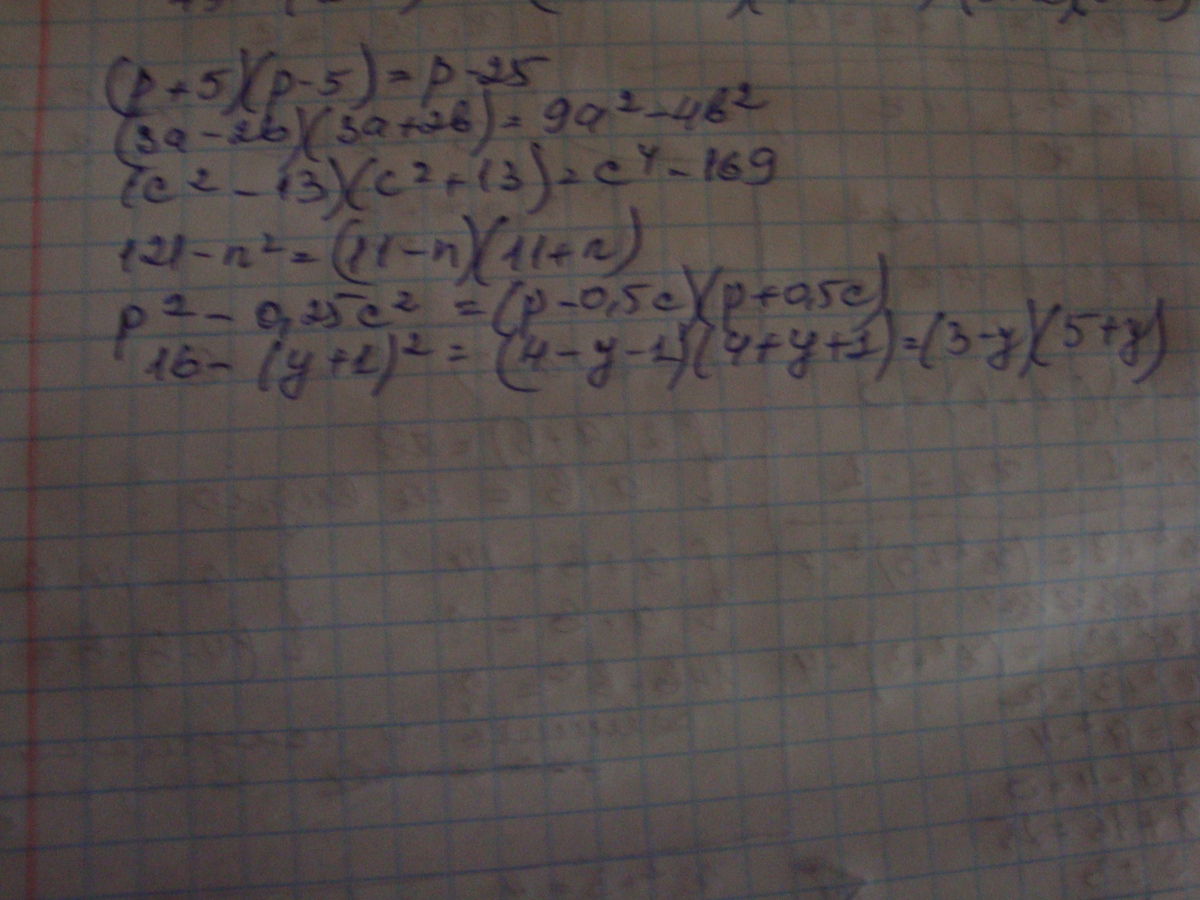 (p+5)(p-5)=p-25
(3a-2b)(3a+2b)=9a²-4b²
(c²-13)(c²+13)=c⁴-169
121-n²=(11-n)(11+n)
p²-0,25c²=(p-0,5c)(p+0,5c)
16-(y+1)²=(4-y-1)(4+y+1)=(3-y)(5+y)